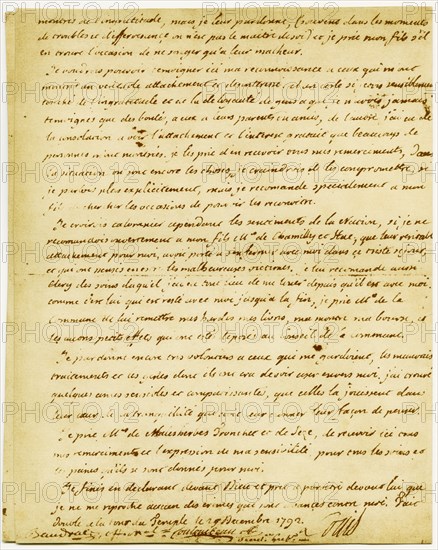 montrés de l'ingratitude, mais je leur pardonne, (souvent dans les moments
de troubles et d'effervescence on n'est pas le maitre de soi) et je prie mon fils s'il
en trouve l'occasion de ne songer qu'a leur malheur.
Je voudrois pouvoir temoigner ici ma reconnoissance a ceux qui m'ont
montré un attachement et desinteressé, d'un coté si j'etois sensiblement
touché de l'ingratitude et de la deloyauté de gens a qui je n'avois jamais
temoignés que des bontés, a eux a leurs parents ou amis, de l'autre j'ai eu de
la consolation a voir l'attachement et l'interest gratuit que beaucoup de
personnes m'ont montrées. je les prie d'en recevoir tous mes remerciments, dans
la situation ou sont encore les choses, je craindrois de les compromettre si
je parlois plus explicitement, mais je recomande specialement a mon
fils de chercher les occasions de pouvoir les reconnoitre.
Je croirois calomnier cependant les sentiments de la Nation, si je ne
recomandois ouvertement a mon fils Mrs de Chamilly et Hue, que leur veritable
attachement pour moi, avoit porté a s'enfermer avec moi dans ce triste sejour,
et qui ont pensés en etre les malheureuses victimes, je lui recomande aussi
Clery des soins duquel j'ai eu tout lieu de me louer depuis qu'il est avec moi
comme c'est lui qui est resté avec moi jusqu'a la fin, je prie Mrs de la
Commune de lui remettre mes hardes mes livres, ma montre ma bourse, et
les autres petits effets qui ont été deposés au Conseil de la Commune.
Je pardonne encore tres volontiers a ceux qui me gardoient, les mauvais
traitements et les gesnes dont ils ont cru devoir user envers moi, j'ai trouvé
quelques ames sensibles et compatissantes, que celles la jouissent dans
leur coeur de la tranquillité que doit leur donner leur façon de penser.
Je prie Mrs de Malesherbes Tronchet et de Seze, de recevoir ici tous
mes remerciments et l'expression de ma sensibilité, pour tous les soins et
les peines qu'ils se sont donnés pour moi.
Je finis en declarant devant Dieu et pret a paroitre devant lui que
je ne me reproche aucun des crimes qui sont avancés contre moi. Fait
double a la Tour du Temple le 25 Decembre 1792.
Louis
Baudrais